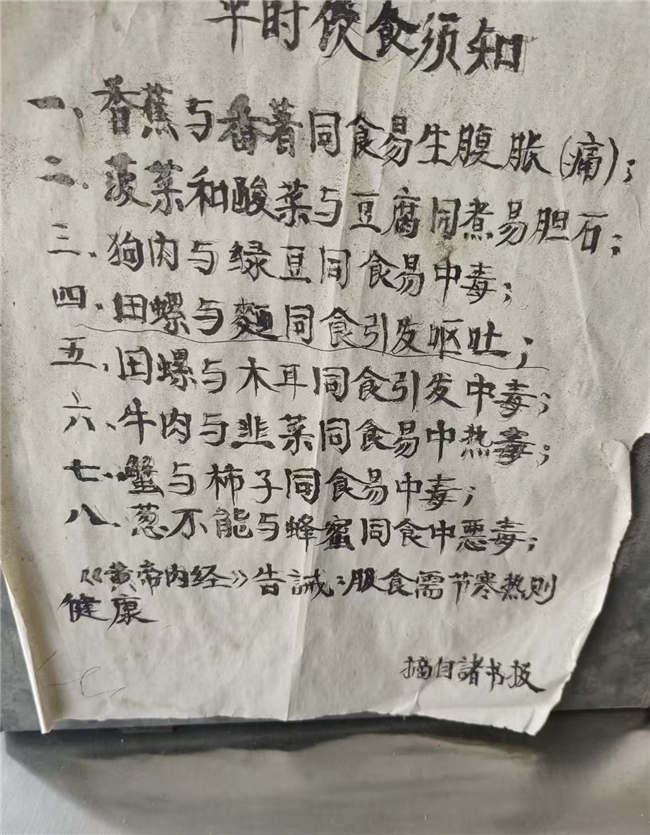 平时饮食须知
一、香蕉与番薯同食易生腹胀(痛);
二、菠菜和酸菜与豆腐同煮易胆石;
三、狗肉与绿豆同食易中毒;
四、田螺与麵同食引发呕吐;
五、田螺与木耳同食引发中毒;
六、牛肉与韭菜同食易中热毒;
七、蟹与柿子同食易中毒;
八、葱不能与蜂蜜同食中恶毒;
《黄帝内经》告誡:服食需节寒热则
健康
摘自諸书报